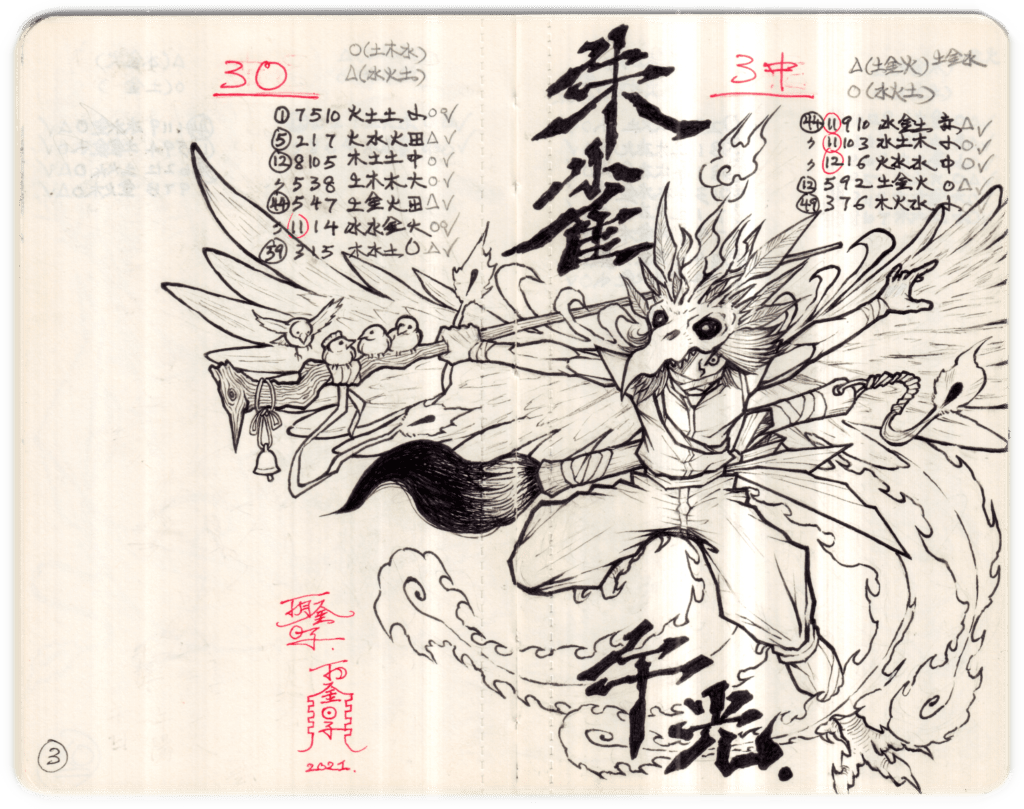 30
○(土木水)
△(水火土)
① 7 5 10 火土土小○○✓
⑤ 2 1 7 火水火田△✓
⑫ 8 10 5 木土土中○✓
〃 5 3 8 土木木大○✓
㊹ 5 4 7 土金火田△✓
〃 ⑪ 1 4 水水金火○○✓
㊴ 3 1 5 木水土○△✓
3中
△(土金火) 土金水
○(水火土)
㊹ ⑪ 9 10 水金土 △✓
〃 ⑪ 10 3 水土木小○✓
〃 ⑫ 1 6 火水水中○✓
⑫ 5 9 2 土金火○△✓
㊾ 3 7 6 木火水小○✓
朱雀
午羌.
2021.
③